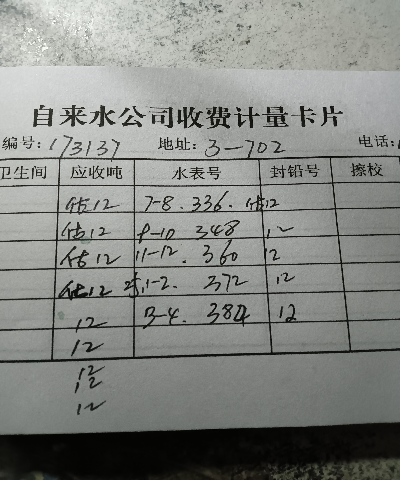 自来水公司收费计量卡片
编号: 173137 地址: 3-702 电话:
卫生间 应收吨 水表号 封铅号 擦校
估12 7-8. 336. 估12
估12 9-10 348 12
估12 11-12. 360 12
估12 25,1-2. 372 12
12 3-4. 384 12
12
12
12
12